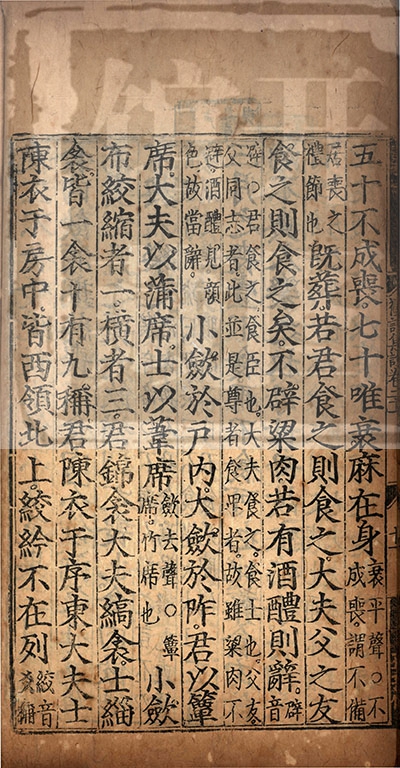 五十不成喪。七十唯衰麻在身衰平聲○不成喪謂不備
居喪之禮節也既葬若君食之則食之大夫父之友
食之則食之矣。不辟粱肉若有酒醴則辭。辟音
辟○君食之食臣也。大夫食之。食士也。父友。父同志者。此並是尊者食卑者。故雖粱肉不
避。酒醴見顏色故當辭。小斂於戶內。大斂於阼。君以簟
席。大夫以蒲席。士以葦席斂去聲○簟席。竹席也小斂
布絞縮者一。橫者三。君錦衾大夫縞衾。士緇
衾。皆一衾十有九稱君陳衣于序東大夫士
陳衣于房中。皆西領北上。絞紟不在列絞音